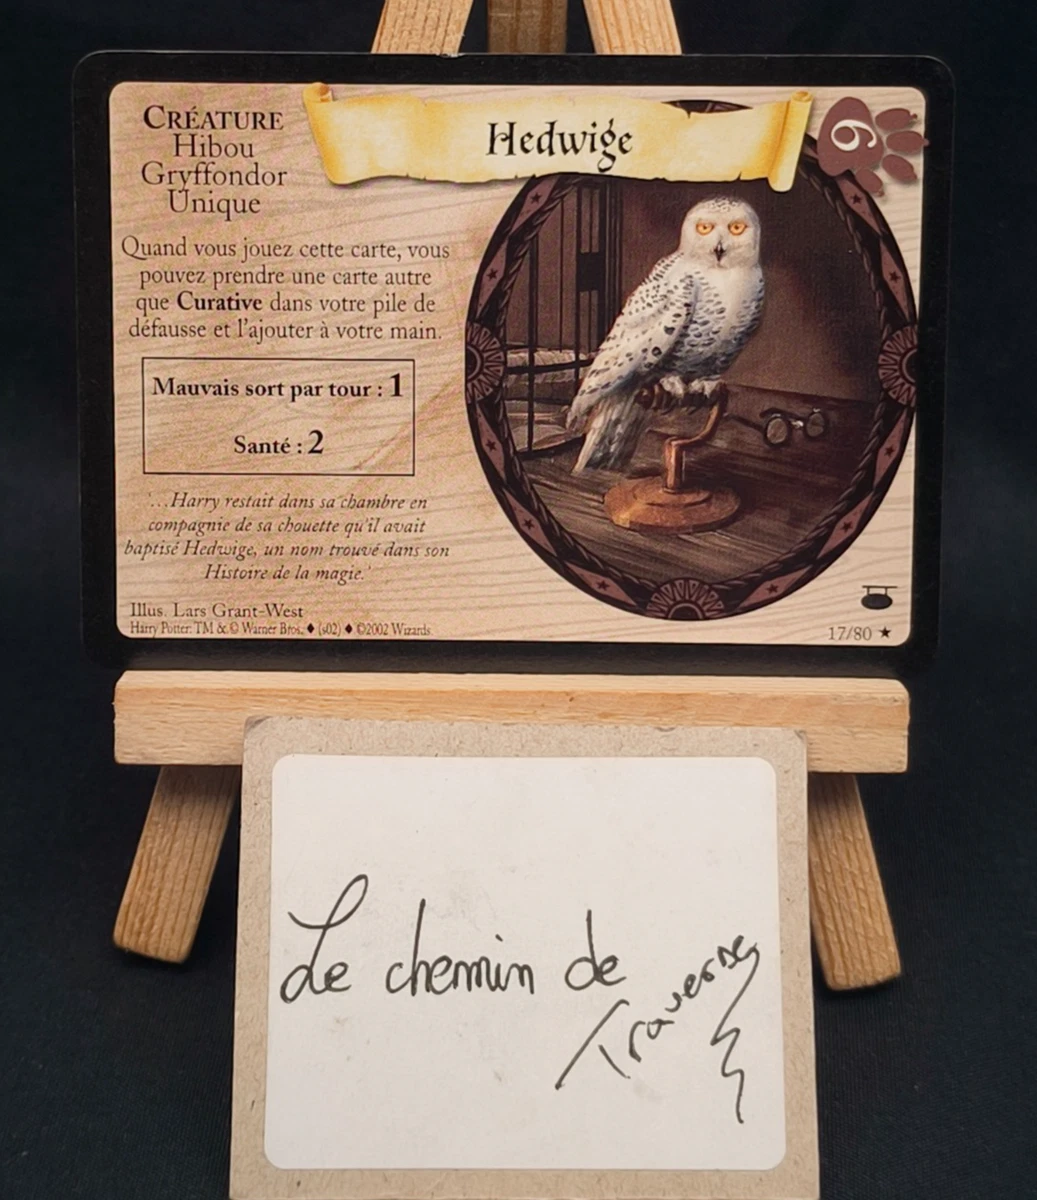 Hedwige
6
CRÉATURE
Hibou
Gryffondor
Unique
Quand vous jouez cette carte, vous
pouvez prendre une carte autre
que Curative dans votre pile de
défausse et l'ajouter à votre main.
Mauvais sort par tour : 1
Santé : 2
'...Harry restait dans sa chambre en
compagnie de sa chouette qu'il avait
baptisé Hedwige, un nom trouvé dans son
Histoire de la magie.'
Illus. Lars Grant-West
Harry Potter: TM & © Warner Bros. ♦ (s02) ♦ ©2002 Wizards.
17/80 ★
Le chemin de
Traverse